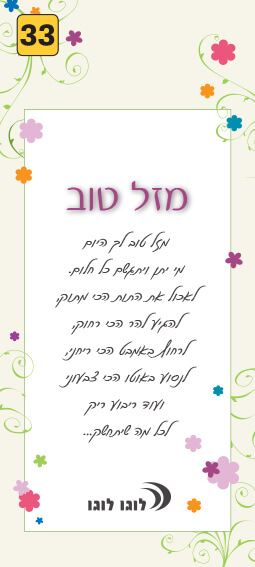 33
מזל טוב
מזל טוב לך היום
מי יתן ויתגשם כל חלום.
לאכול את התות הכי מתוק,
להגיע להר הכי רחוק,
לרחוץ באמבט הכי ריחני,
לנסוע באוטו הכי צבעוני
ועוד ריבוע ריק
לכל מה שיתחשק...
לוגו לוגו